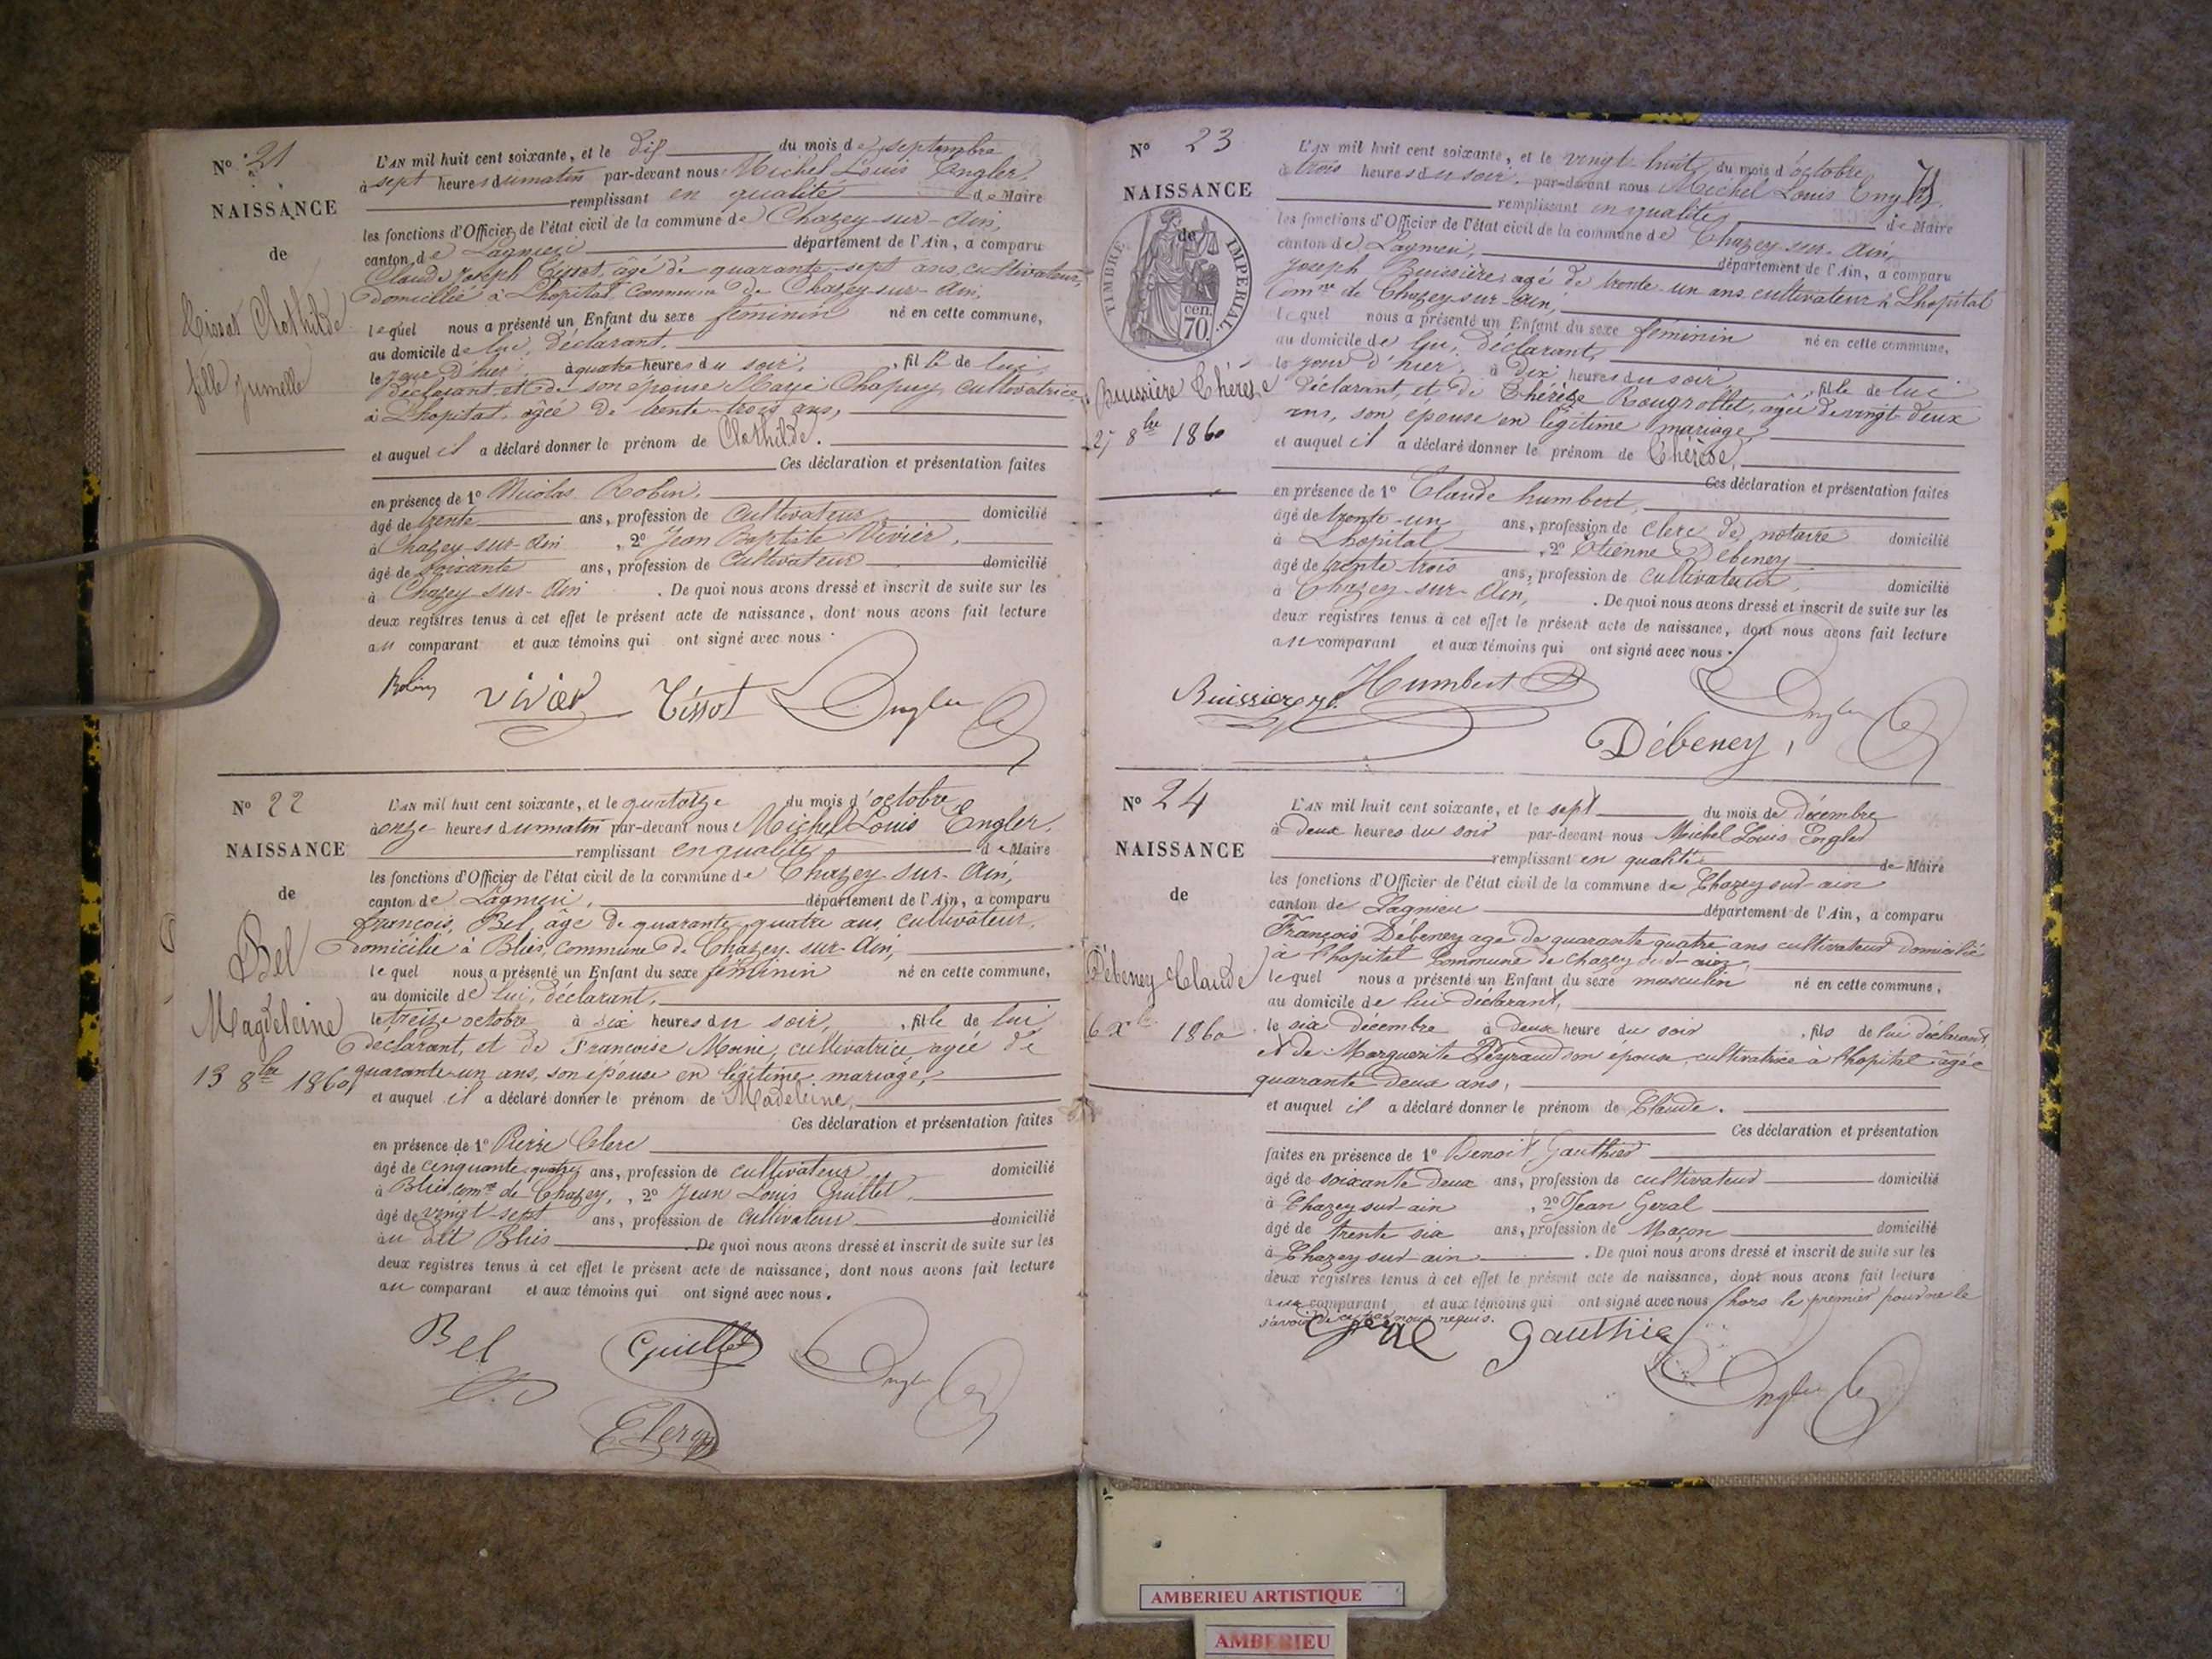 N° 21
NAISSANCE
de
Tissot Clothilde
fille jumelle
L'AN mil huit cent soixante, et le dix du mois de septembre
à sept heures du matin par-devant nous Michel Louis Engler
remplissant en qualité de Maire
les fonctions d'Officier de l'état civil de la commune de Chazey-sur-Ain,
canton de Lagnieu département de l'Ain, a comparu
Claude Joseph Tissot, âgé de quarante-sept ans, cultivateur,
domicilié à Lhopital commune de Chazey-sur-Ain,
lequel nous a présenté un Enfant du sexe féminin né en cette commune,
au domicile de lui, déclarant,
le jour d'hier, à quatre heures du soir, fille de lui
déclarant et de son épouse Chapuy cultivatrice
à Lhopital, agée de trente-trois ans,
et auquel il a déclaré donner le prénom de Clothilde.
Ces déclaration et présentation faites
en présence de 1° Nicolas Robin,
âgé de trente ans, profession de cultivateur domicilié
à Chazey-sur-Ain, 2° Jean Baptiste Vivier,
âgé de soixante ans, profession de cultivateur domicilié
à Chazey-sur-Ain. De quoi nous avons dressé et inscrit de suite sur les
deux registres tenus à cet effet le présent acte de naissance, dont nous avons fait lecture
au comparant et aux témoins qui ont signé avec nous.
Robin Vivier Tissot Engler
N° 22
NAISSANCE
de
Bel
Magdeleine
13 8bre 1860
L'AN mil huit cent soixante, et le quatorze du mois d'octobre
à onze heures du matin par-devant nous Michel Louis Engler,
remplissant en qualité de Maire
les fonctions d'Officier de l'état civil de la commune de Chazey-sur-Ain,
canton de Lagnieu, département de l'Ain, a comparu
François Bel, âgé de quarante-quatre ans, cultivateur,
domicilié à Blies, commune de Chazey-sur-Ain,
lequel nous a présenté un Enfant du sexe féminin né en cette commune,
au domicile de lui, déclarant,
le treize octobre à six heures du soir, fille de lui
déclarant, et de Francoise Moine, cultivatrice, agée de
quarante-un ans, son épouse en légitime mariage,
et auquel il a déclaré donner le prénom de Madeleine,
Ces déclaration et présentation faites
en présence de 1° Pierre Clerc
âgé de cinquante-quatre ans, profession de cultivateur domicilié
à Blies, comne de Chazey, 2° Jean Louis Guillet,
âgé de vingt-sept ans, profession de cultivateur domicilié
au dit Blies. De quoi nous avons dressé et inscrit de suite sur les
deux registres tenus à cet effet le présent acte de naissance, dont nous avons fait lecture
au comparant et aux témoins qui ont signé avec nous.
Bel Guillet Engler
Clerc
N° 23
NAISSANCE
de
TIMBRE IMPERIAL
70 cen.
Buissière Thérèse
27 8bre 1860
L'AN mil huit cent soixante, et le vingt-huit du mois d'octobre
à trois heures du soir, par-devant nous Michel Louis Engler
remplissant en qualité de Maire
les fonctions d'Officier de l'état civil de la commune de Chazey-sur-Ain,
canton de Lagnieu, département de l'Ain, a comparu
Joseph Buissière, agé de trente-un ans, cultivateur à Lhopital
comne de Chazey-sur-Ain,
lequel nous a présenté un Enfant du sexe féminin né en cette commune,
au domicile de lui, déclarant,
le jour d'hier, à dix heures du soir, fille de lui
déclarant, et de Thérèse Rougrollet, agée de vingt-deux
ans, son épouse en légitime mariage,
et auquel il a déclaré donner le prénom de Thérèse,
Ces déclaration et présentation faites
en présence de 1° Claude humbert,
âgé de trente-un ans, profession de clerc de notaire domicilié
à Lhopital, 2° Etienne Debeney
âgé de trente-trois ans, profession de cultivateur, domicilié
à Chazey-sur-Ain,. De quoi nous avons dressé et inscrit de suite sur les
deux registres tenus à cet effet le présent acte de naissance, dont nous avons fait lecture
au comparant et aux témoins qui ont signé avec nous.
Buissiere Humbert Engler
Débeney
N° 24
NAISSANCE
de
Débeney Claude
6 Xbre 1860
L'AN mil huit cent soixante, et le sept du mois de décembre
à deux heures du soir par-devant nous Michel Louis Engler
remplissant en qualité de Maire
les fonctions d'Officier de l'état civil de la commune de Chazey sur-ain
canton de Lagnieu département de l'Ain, a comparu
François Débeney agé de quarante quatre ans cultivateur domicilié
à l'hopital Commune de Chazey sur-ain,
lequel nous a présenté un Enfant du sexe masculin né en cette commune,
au domicile de lui déclarant,
le six décembre à deux heure du soir, fils de lui déclarant
et de Marguerite Peyraud son épouse, cultivatrice à l'hopital âgée
quarante deux ans,
et auquel il a déclaré donner le prénom de Claude.
Ces déclaration et présentation
faites en présence de 1° Benoit Gauthier
âgé de soixante deux ans, profession de cultivateur domicilié
à Chazey sur-ain, 2° Jean Geral
âgé de trente six ans, profession de Maçon domicilié
à Chazey sur-ain. De quoi nous avons dressé et inscrit de suite sur les
deux registres tenus à cet effet le présent acte de naissance, dont nous avons fait lecture
au comparant et aux témoins qui ont signé avec nous hors le premier pour ne le
savoir de ce par nous requis.
Geral Gauthier
Engler
AMBERIEU ARTISTIQUE
AMBERIEU